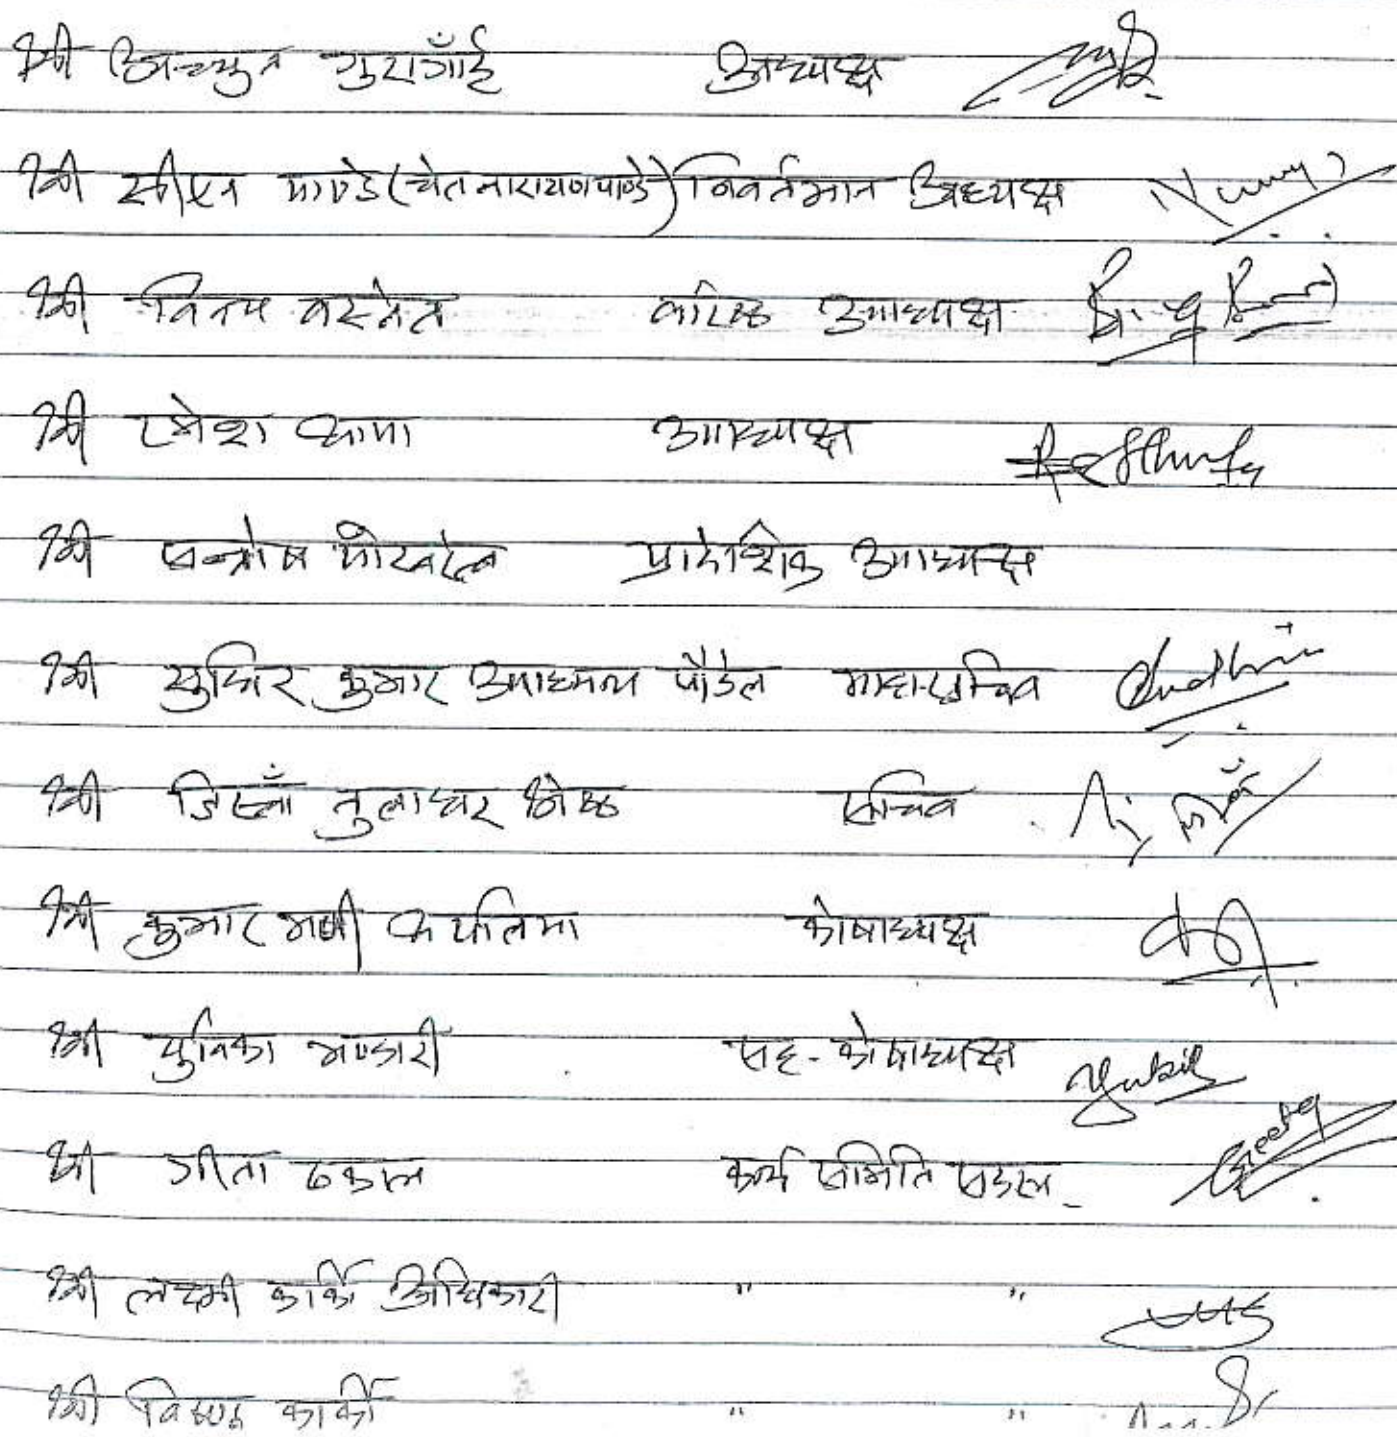 श्री अच्युत गुरागाँई अध्यक्ष
श्री सीएन पाण्डे (चेतनारायण पाण्डे) निवर्तमान अध्यक्ष
श्री विनय बस्नेत वरिष्ठ उपाध्यक्ष
श्री रमेश थापा उपाध्यक्ष
श्री सन्तोष पोखरेल प्रादेशिक उपाध्यक्ष
श्री सुधिर कुमार उपाध्याय पौडेल महासचिव Sudhir
श्री तुलाधर श्रेष्ठ सचिव
श्री कुमार मणी थपलिया कोषाध्यक्ष
श्री युनिका भण्डारी सह-कोषाध्यक्ष
श्री गीता ढकाल कार्य समिति सदस्य Geeta
श्री लक्ष्मी कार्की अधिकारी " "
श्री विष्णु कार्की " "